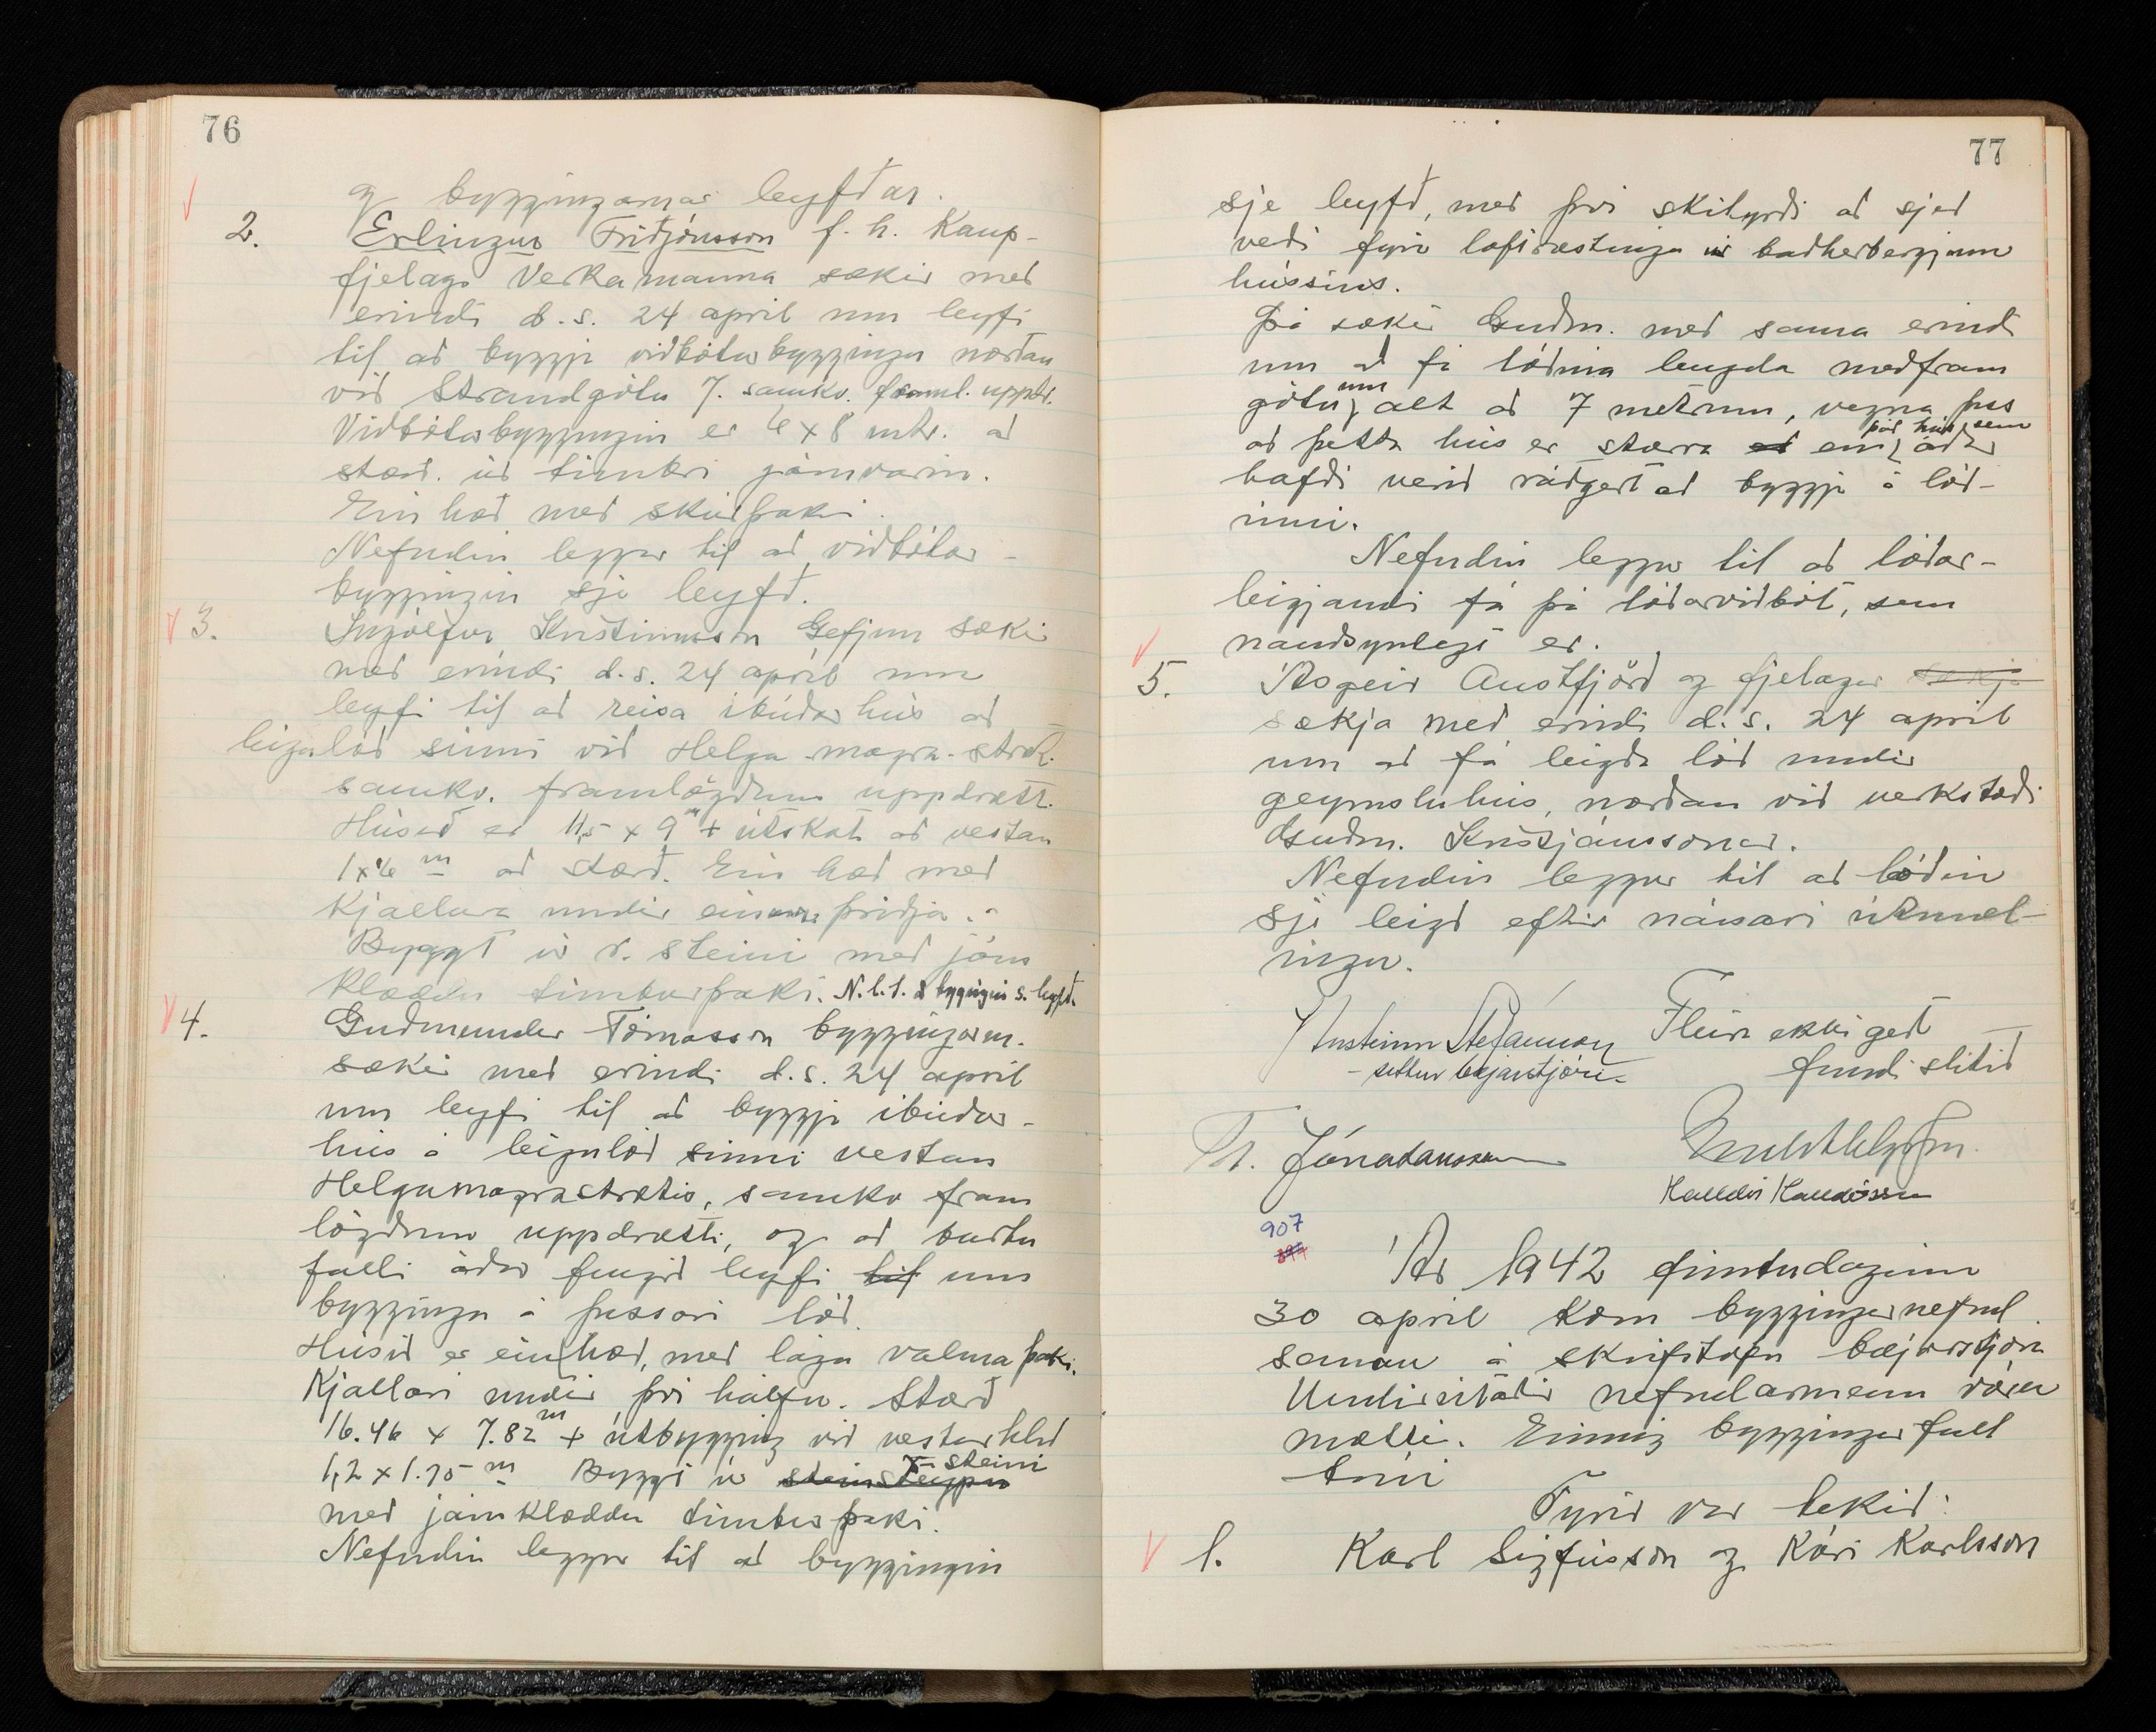 76
og byggingarnar leyfðar.
2. Erlingur Friðjónsson f. h. Kaup-
fjelags Verkamanna sækir með
erindi d.s. 24 apríl um leyfi
til að byggja viðbótarbyggingu norðan
við Strandgötu 7. samkv. framl. uppdr.
Viðbótarbyggingin er 6 x 8 mtr. að
stærð. úr timbri járnvarin.
Ein hæð með skúrþaki.
Nefndin leggur til að viðbótar-
byggingin sje leyfð.
3. Ingólfur Kristinsson Gefjun sækir
með erindi d.s. 24 apríl um
leyfi til að reisa íbúðarhús að
leigulóð sinni við Helga-magra-stræti.
samkv. framlögðum uppdrætti.
Húsið er 11,5 x 9 m + útskot að vestan
1x6 m að stærð. Ein hæð með
kjallara undir einum þriðja.
Byggt úr r. steini með járn
klæddu timburþaki. N. l. t. að byggingin s. leyfð.
4. Guðmundur Tómasson byggingam.
sækir með erindi d.s. 24 apríl
um leyfi til að byggja íbúðar-
hús á leigulóð sinni vestan
Helgamagrastrætis, samkv fram
lögðum uppdrætti, og að burtu
falli áður fengið leyfi til um
byggingu á þessari lóð.
Húsið er ein hæð, með lágu valma þaki.
Kjallari undir því hálfu. Stærð
16.46 x 7.82 m + útbygging við vesturhlið
1,2 x 1.75 m Byggt úr steinsteypu r steini
með járnklæddu timburþaki.
Nefndin leggur til að byggingin
77
sje leyfð, með því skilyrði að sjeð
verði fyrir loftræstingu úr baðherbergjum
hússins.
Þá sækir Guðm. með sama erindi
um að fá lóðina lengda meðfram
götunum alt að 7 metrum, vegna þess
að þetta hús er stærra að en það hús sem áður
hafði verið ráðgert að byggja á lóð-
inni.
Nefndin leggur til að lóðar-
leigjandi fá þá lóðarviðbót, sem
nauðsynlegt er.
5. Ásgeir Austfjörð og fjelagar sækja
sækja með erindi d.s. 24 apríl
um að fá leigða lóð undir
geymsluhús, norðan við verkstæði
Guðm. Kristjánssonar.
Nefndin leggur til að lóðin
sje leigð eftir nánari útmæl-
ingu.
Þorsteinn Stefánsson Fleira ekki gert
- settur bæjarstjóri - fundi slitið
Tr. Jónatansson
Halldór Halldórsson
907
Ár 1942 fimtudaginn
30 apríl kom byggingarnefnd
saman á skrifstofu bæjarstjóra
Undirritaðir nefndarmenn voru
mættir. Einnig byggingarfull
trúi
Fyrir var tekið:
1. Karl Sigfússon og Kári Karlsson